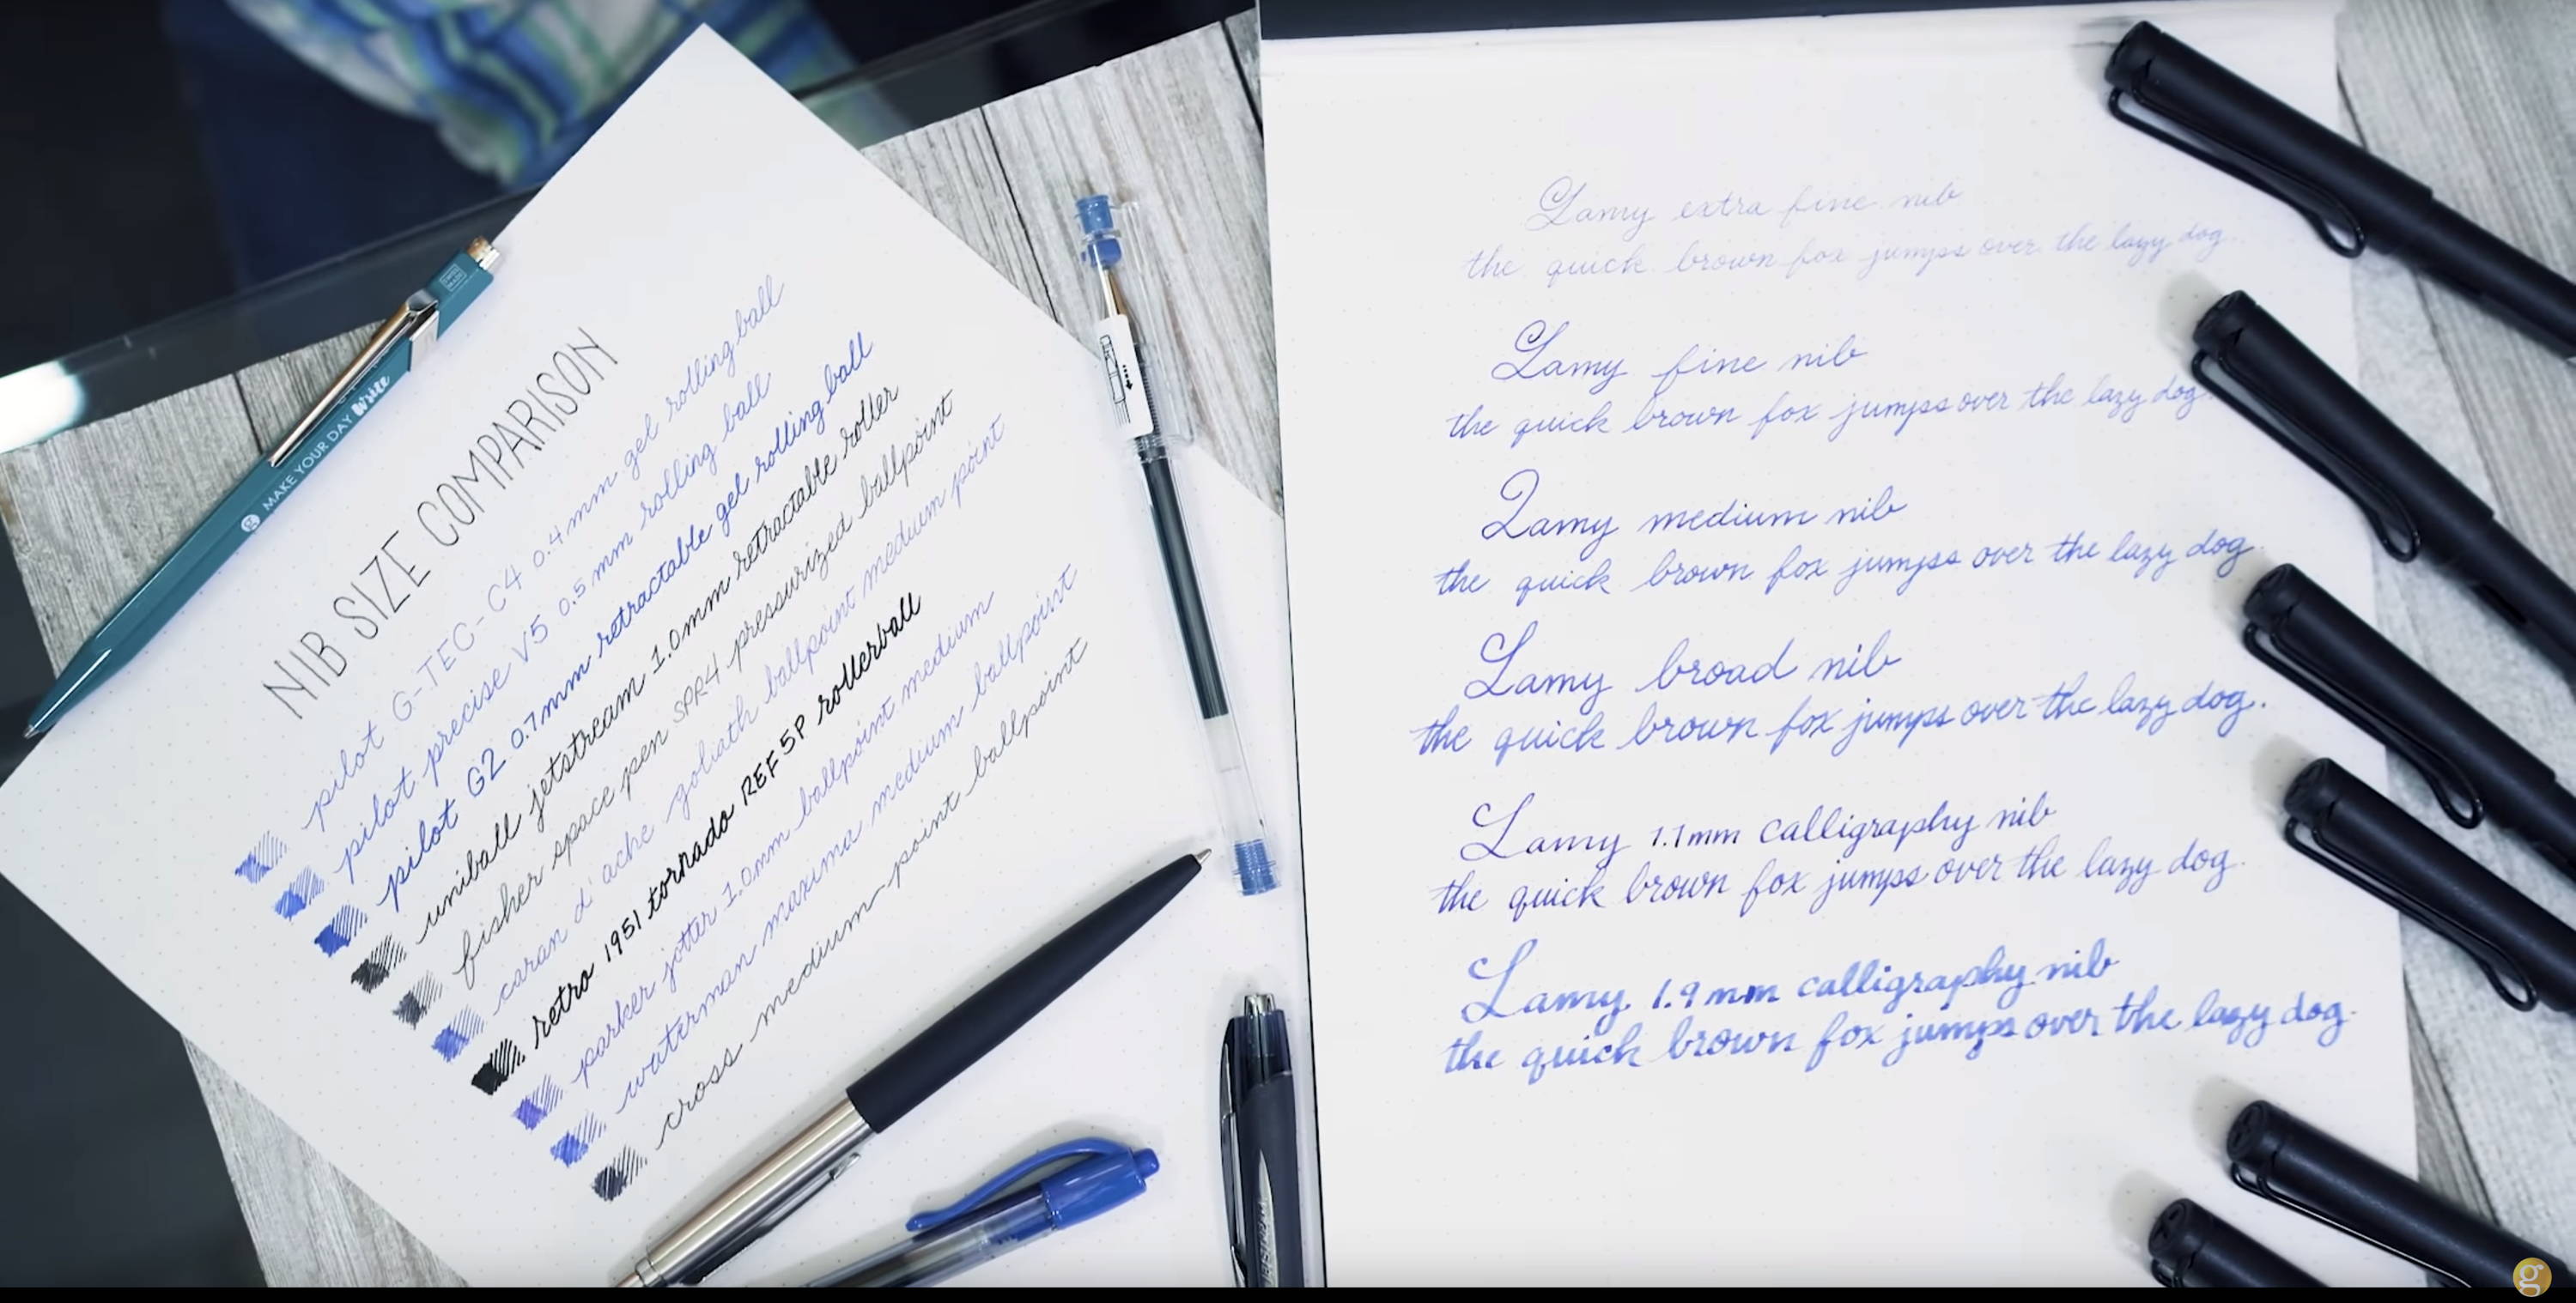 MAKE YOUR DAY Write
NIB SIZE COMPARISON
pilot G-TEC-C4 0.4mm gel rolling ball
pilot precise V5 0.5mm rolling ball
pilot G2 0.7mm retractable gel rolling ball
uniball jetstream 1.0mm retractable roller
fisher space pen SPR4 pressurized ballpoint
caran d'ache goliath ballpoint medium point
retro 1951 tornado REF5P rollerball
parker jotter 1.0mm ballpoint medium
waterman maxima medium ballpoint
cross medium-point ballpoint
Lamy extra fine nib
the quick brown fox jumps over the lazy dog.
Lamy fine nib
the quick brown fox jumps over the lazy dog.
Lamy medium nib
the quick brown fox jumps over the lazy dog.
Lamy broad nib
the quick brown fox jumps over the lazy dog.
Lamy 1.1mm calligraphy nib
the quick brown fox jumps over the lazy dog.
Lamy 1.9mm calligraphy nib
the quick brown fox jumps over the lazy dog.
g